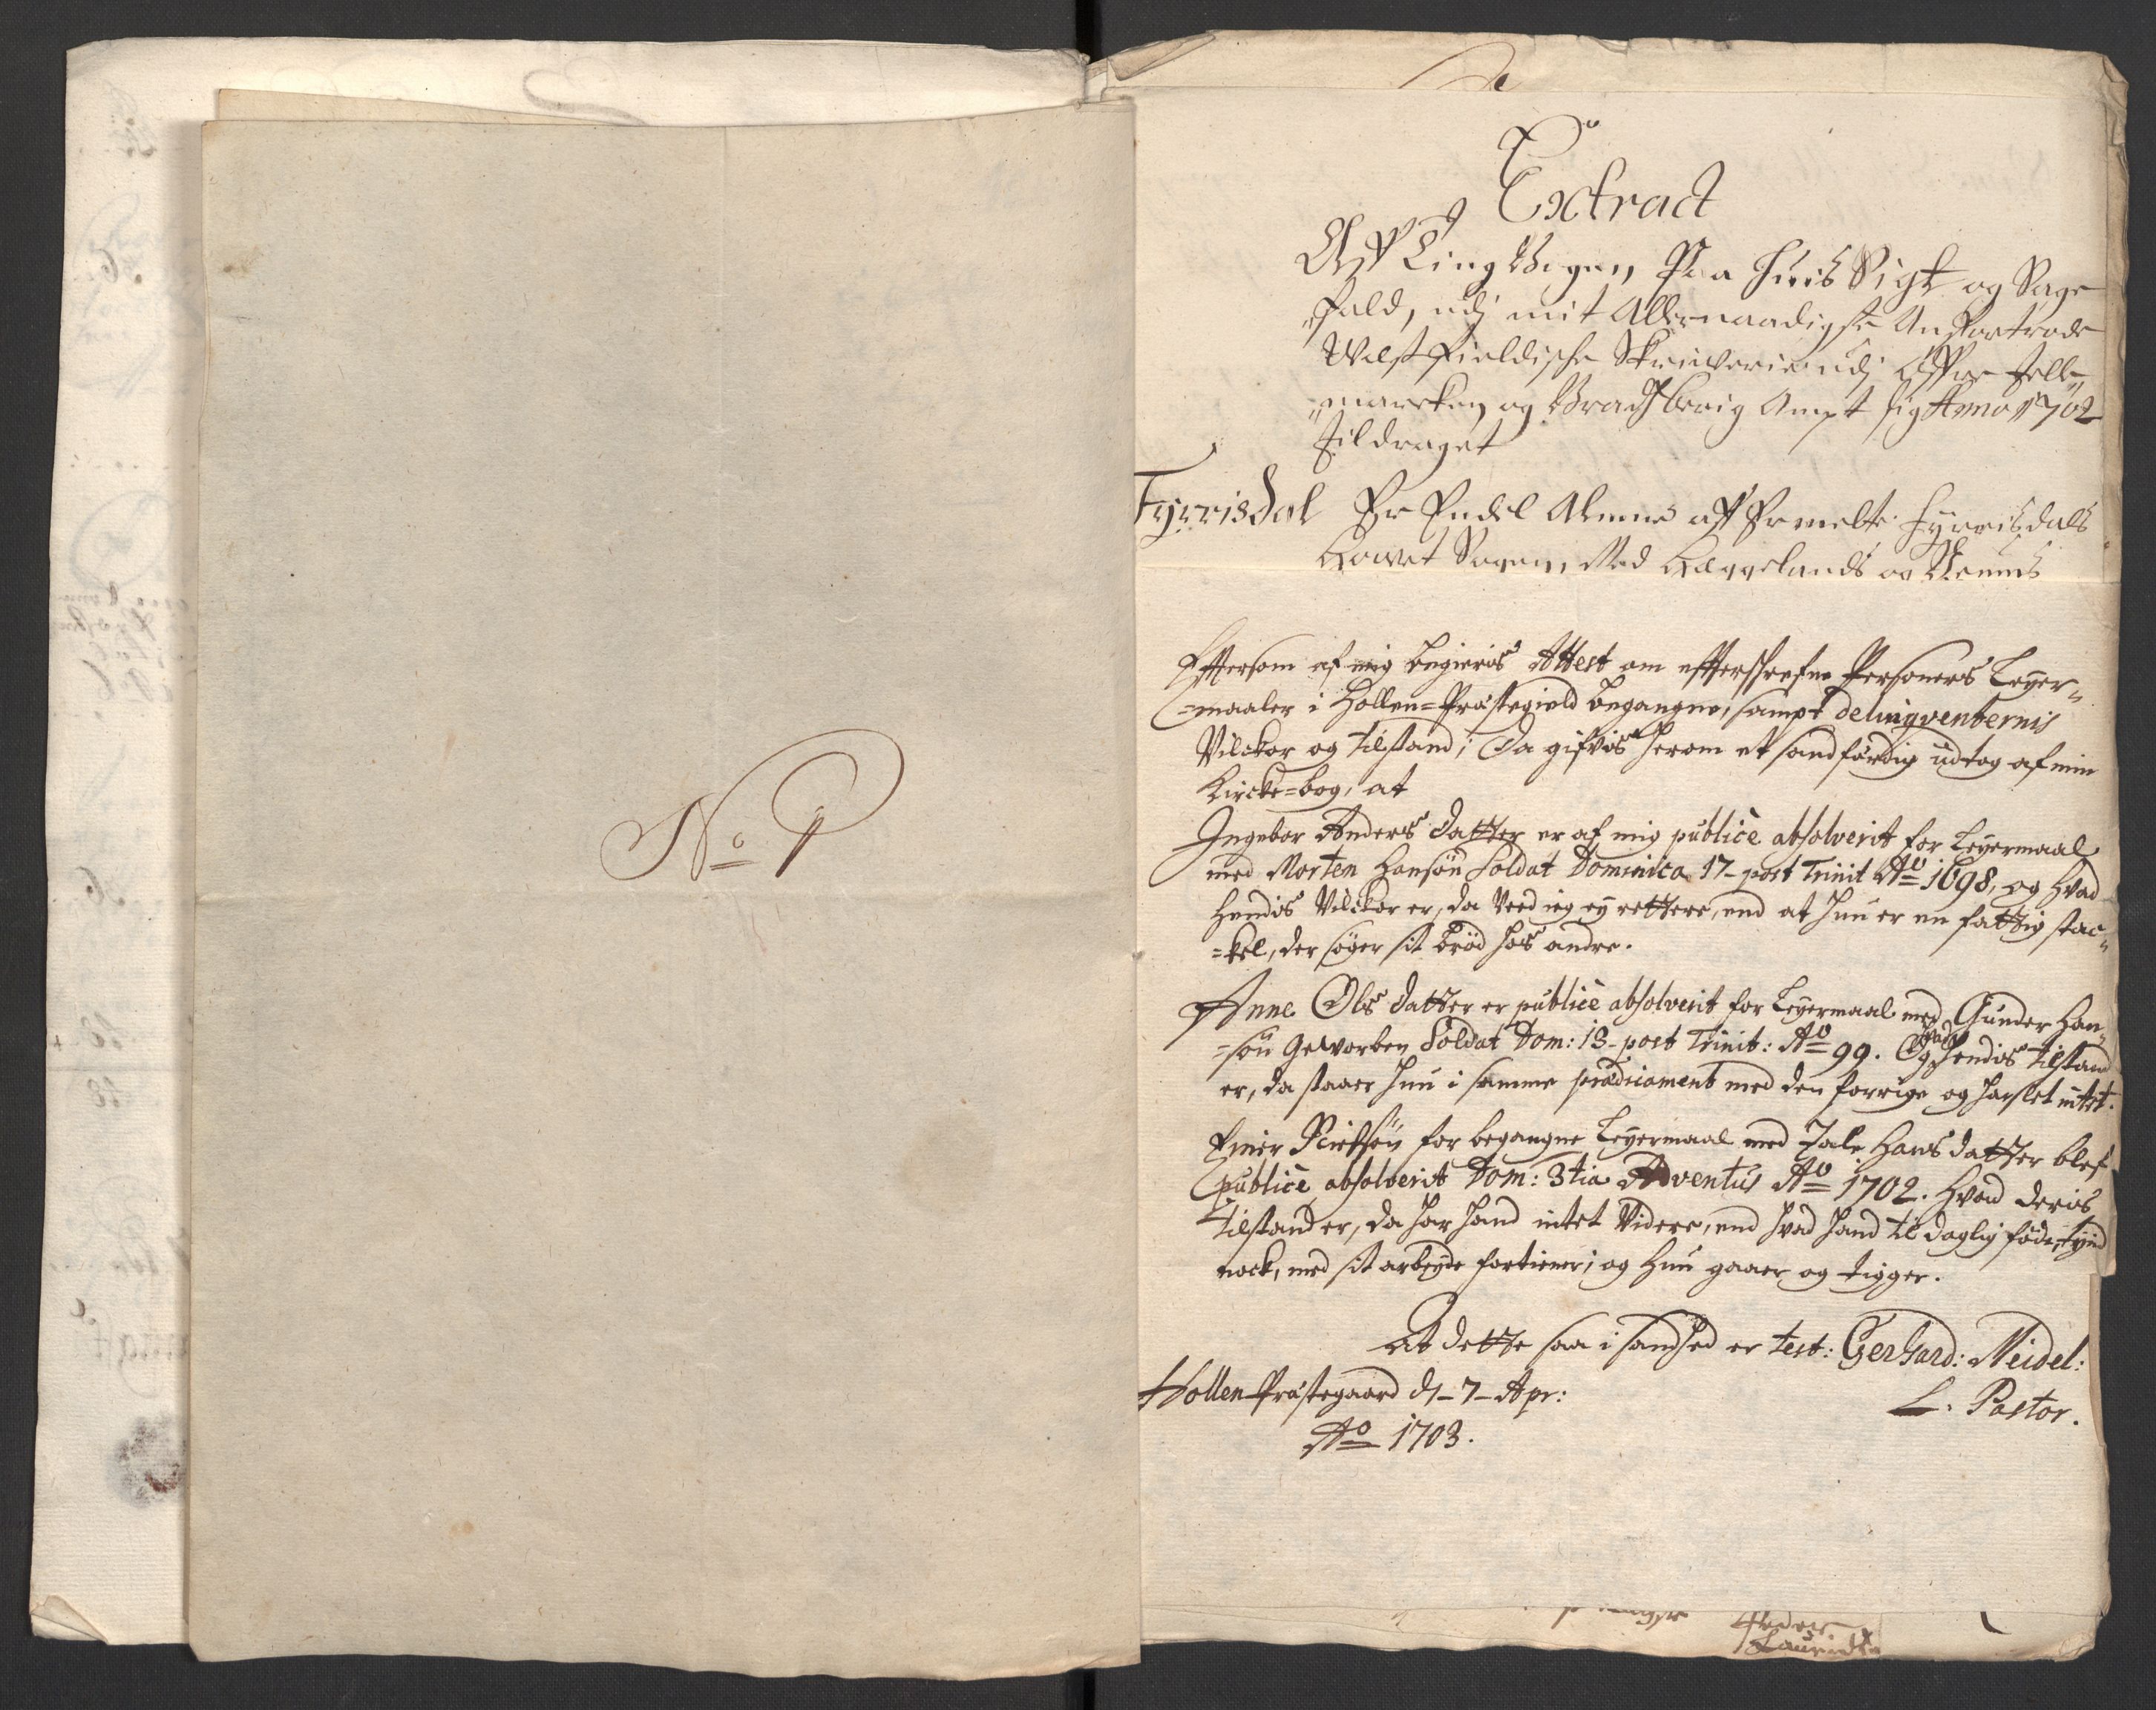 No 1
Extract
Aff Ting Bogen, Paa hvis Sigt og Sage
fald, udj mit Allernaadigste Anfortrode
West fieldische Skriwerie udj Øffre Telle„
„marcken og Bradsberig Ampt sig Anno 1702
tildraget
Fyrrisdal
Er Endel Almue aff Ermelte Fyrrisdals
Howet Sogen, Med Hæggelands og
Efftersom af mig begieris Attest om efftershrefne Personers Leyer„
=maaler i Hollen=Præstegield begangne, sampt delinqventernis
Vilckor og tilstand; Da gifvis herom et sandfærdig udtog af min
Kircke=bog, at
Ingebor Anders datter er af mig publicè absolverit for Leyermaal
med Morten Hansøn Soldat Dominica 17 post Trinit Ao 1698, og hvad
hendis Vilckor er, da veed ieg ey rettere, end at hun er en fattig stac„
=kel, der søger sit brød hos andre.
Anne Ols datter er publicè absolverit for Leyermaal med Gunder Han„
=søn Geworben Soldat Dom: 13 post Trinit: Ao 99. Og hvad hendis tilstand
er, da staaer hun i samme prædicament med den forrige og har slet intet.
Einer Nielsøn for begangne Leyermaal med Tale Hans datter blef
publicè absolverit Dom: 3tia Adventus Ao 1702. Hvad deris
tilstand er, da har hand intet Videre, end hvad hand til daglig føde, tynd
nock, med sit arbeyde fortiener; og hun gaaer og tigger.
At dette saa i sandhed er test: Gerhard: Meidel:
L. Pastor.
Hollen Præstegaard d 7 Apr:
Ao 1703.